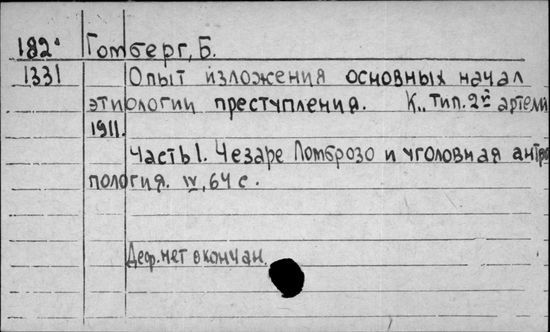 182ᵃ Гомберг, Б.
1331 Опыт изложения основных начал
этиологии преступления. К., тип. 2й артели
1911.
Часть 1. Чезаре Ломброзо и уголовная антро
пология. IV, 64 с.
Деф. нет окончан.